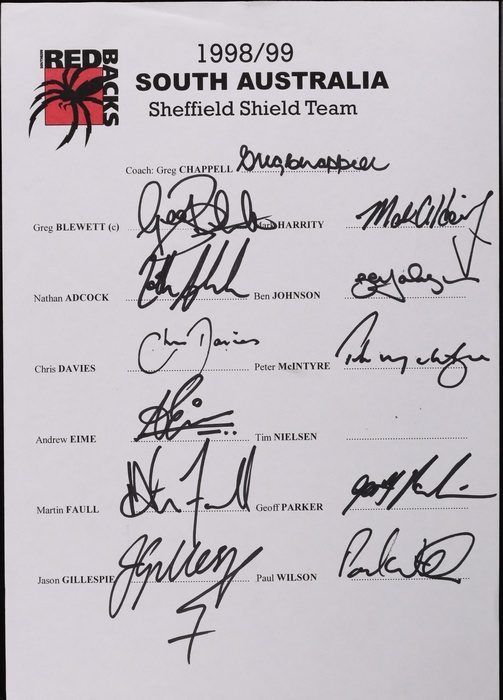 RED BACKS
1998/99
SOUTH AUSTRALIA
Sheffield Shield Team
Coach: Greg CHAPPELL Greg Chappell
Greg BLEWETT (c) HARRITY
Nathan ADCOCK Ben JOHNSON
Chris DAVIES Chris Davies Peter McINTYRE
Andrew EIME Tim NIELSEN
Martin FAULL Geoff PARKER
Jason GILLESPIE Paul WILSON